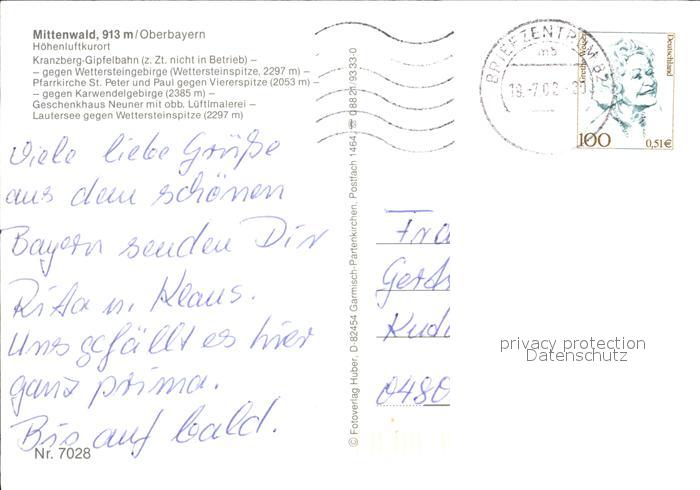 Mittenwald, 913 m/Oberbayern
Höhenluftkurort
Kranzberg-Gipfelbahn (z. Zt. nicht in Betrieb) –
– gegen Wettersteingebirge (Wettersteinspitze, 2297 m) –
Pfarrkirche St. Peter und Paul gegen Viererspitze (2053 m) –
– gegen Karwendelgebirge (2385 m) –
Geschenkhaus Neuner mit obb. Lüftlmalerei –
Lautersee gegen Wettersteinspitze (2297 m)
Viele liebe Grüße
aus dem schönen
Bayern senden Dir
Rita u. Klaus.
Uns gefällt es hier
ganz prima.
Bis auf bald.
Nr. 7028
© Fotoverlag Huber, D-82454 Garmisch-Partenkirchen, Postfach 1464, ☎ 08821/9333-0
BRIEFZENTRUM 82
mb
Deutschland
100
0,51€
Fra
Gert
0480
privacy protection
Datenschutz